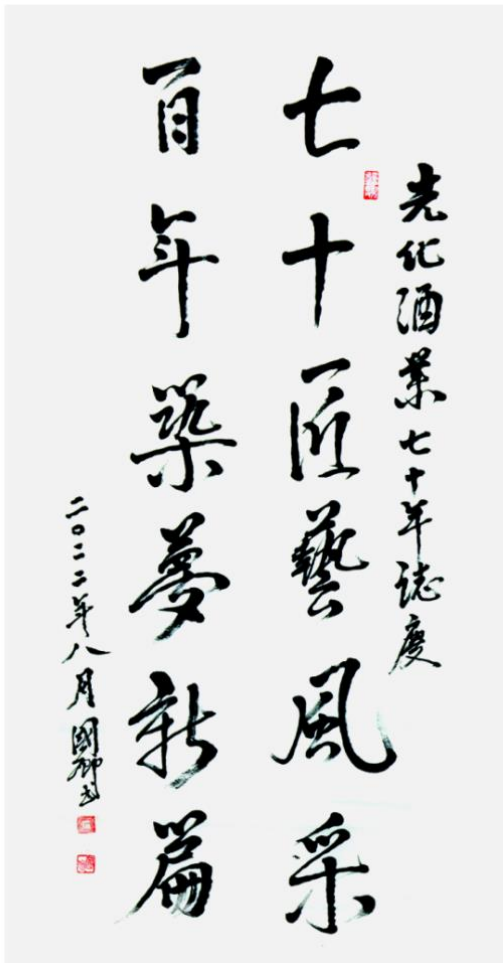 先化酒業七十年誌慶
七十匠藝風采
百年築夢新篇
二〇二二年八月國卿書